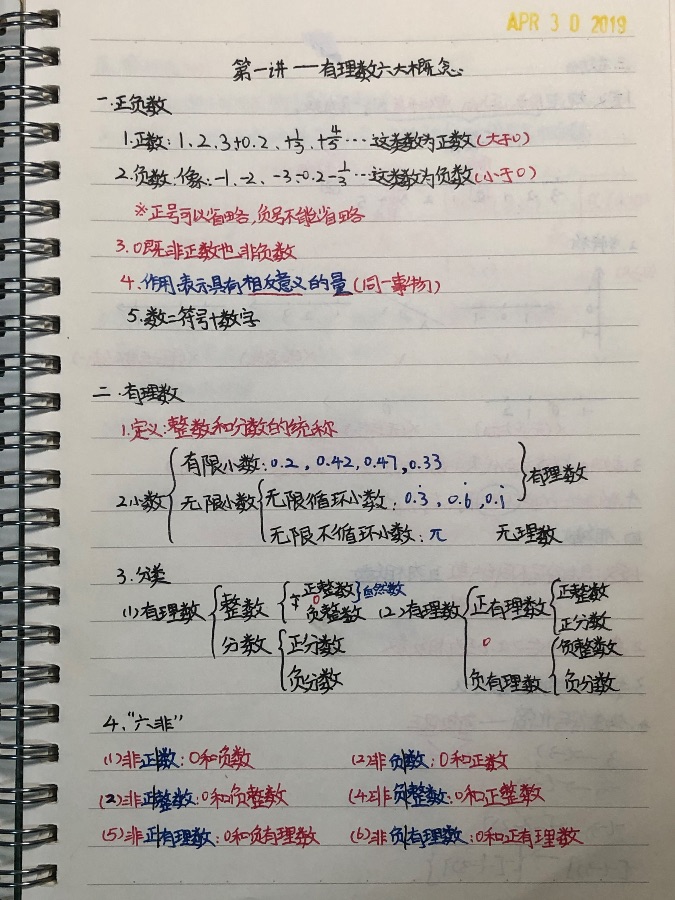 APR 30 2019
第一讲 — 有理数六大概念
一.正负数
1.正数:1、2、3+0.2、+1/3、+4/5…这类数为正数(大于0)
2.负数:像:-1、-2、-3-0.2-1/3…这类数为负数(小于0)
※正号可以省略,负号不能省略
3.0既非正数也非负数
4.作用:表示具有相反意义的量(同一事物)
5.数=符号+数字
二.有理数
1.定义:整数和分数的统称
有限小数:0.2,0.42,0.47,0.33
有理数
2.小数 无限小数 无限循环小数:0.3̇,0.6̇,0.1̇
无限不循环小数:π 无理数
3.分类
(1)有理数 整数 正整数 0 自然数 负整数
分数 正分数 负分数
(2)有理数 正有理数 正整数 正分数
0
负有理数 负整数 负分数
4."六非"
(1)非正数:0和负数 (2)非负数:0和正数
(2)非正整数:0和负整数 (4)非负整数:0和正整数
(5)非正有理数:0和负有理数 (6)非负有理数:0和正有理数